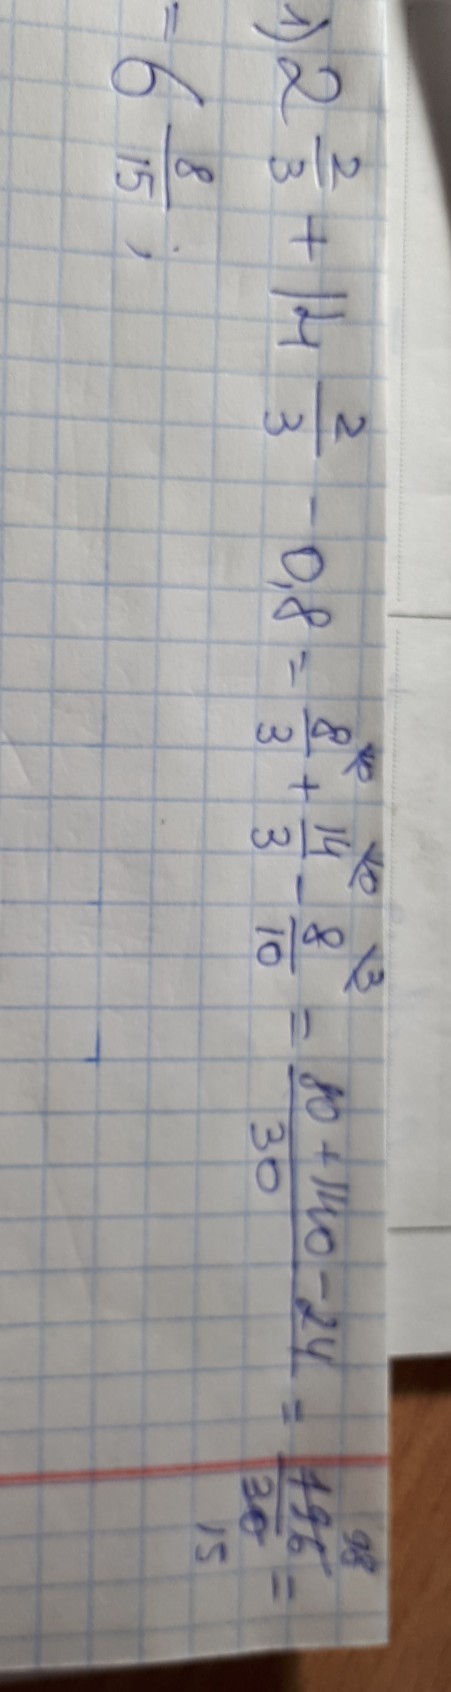 1) 2 2/3 + 14 2/3 - 0,8 = 8/3 \10 + 14/3 \10 - 8/10 \3 = 80 + 140 - 24/30 = 196/30 98/15 =
= 6 8/15 ;